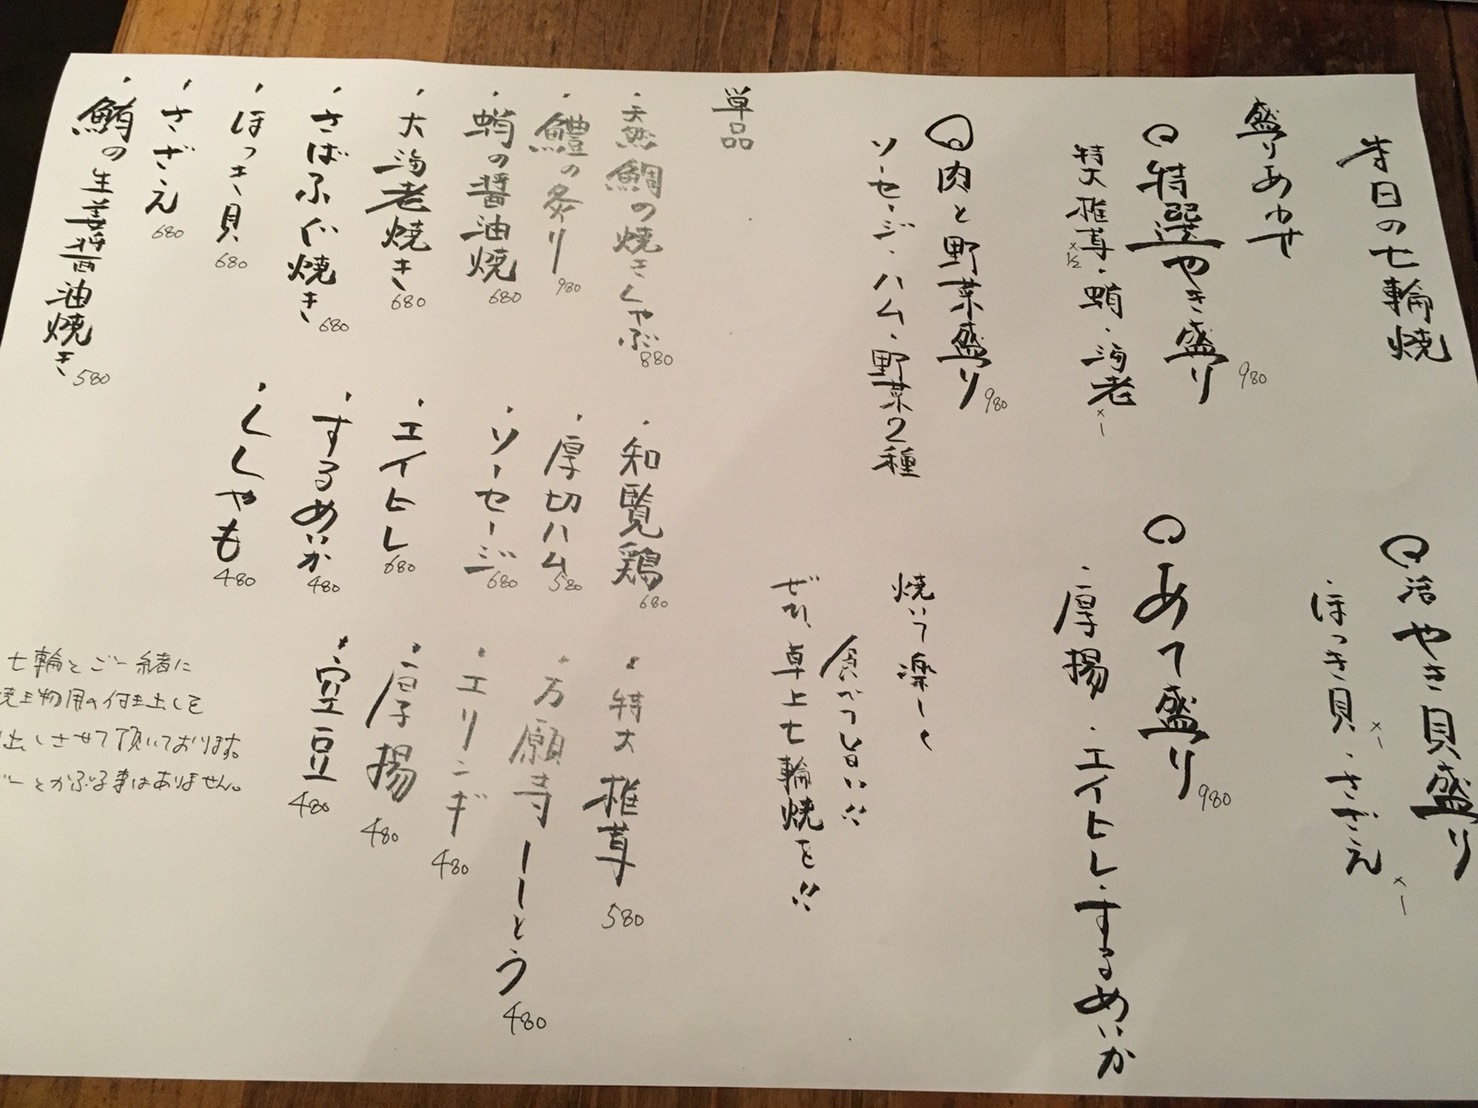 本日の七輪焼
盛りあわせ
特選やき盛り 980
特大椎茸×1/2・蛸・海老×1
活やき貝盛り
・ほっき貝×1・さざえ×1
肉と野菜盛り 980
ソーセージ・ハム・野菜2種
あて盛り 980
・厚揚・エイヒレ・するめいか
焼いて楽しく
食がて旨い!!
ぜひ、卓上七輪焼を!!
単品
・天然鯛の焼きしゃぶ 880
・鱧の炙り 980
・蛸の醤油焼 680
・大海老焼き 680
・さばふぐ焼き 680
・ほっき貝 680
・さざえ 680
・鮪の生姜醤油焼き 580
・知覧鶏 680
・厚切ハム 580
・ソーセージ 680
・エイヒレ 680
・するめいか 480
・ししゃも 480
・特大椎茸 580
・万願寺しーとう 480
・エリンギ 480
・厚揚 480
・空豆 480
七輪とご一緒に
焼き物用の付き出しを
出しさせて頂いております。
とかぶる事はありません。